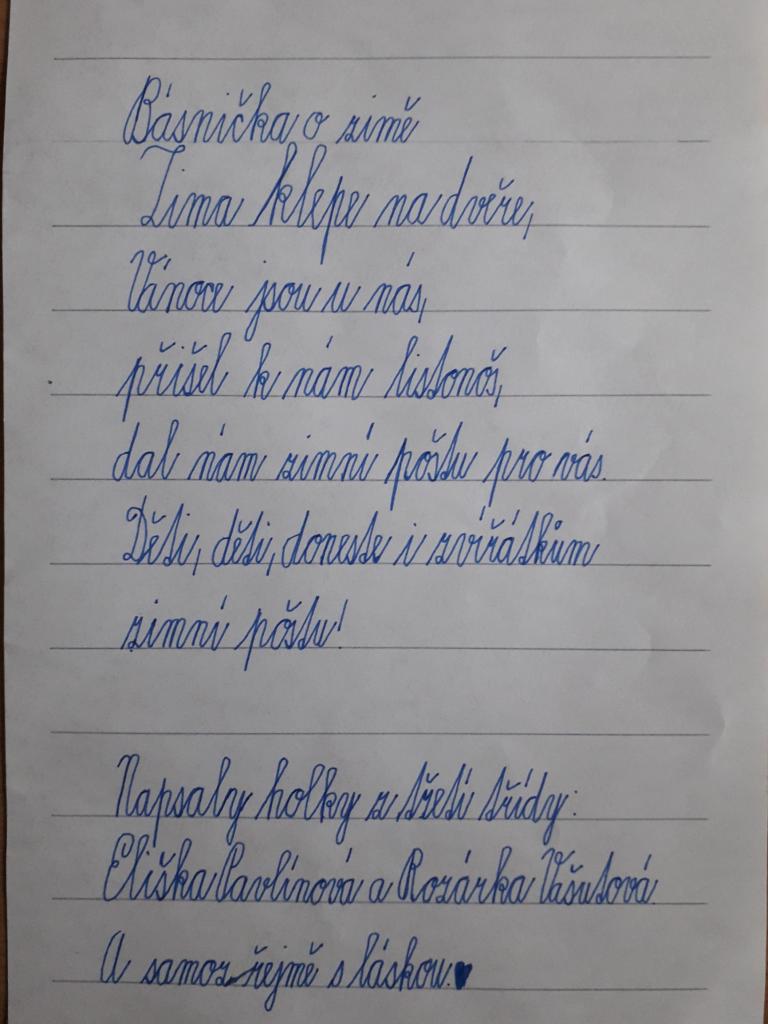 Básnička o zimě
Zima klepe na dveře,
Vánoce jsou u nás,
přišel k nám listonoš,
dal nám zimní póštu pro vás.
Děti, děti, doneste i zvířátkům
zimní póštu!
Napsaly holky z třetí třídy:
Eliška Pavlínová a Rozárka Vašutová.
A samozřejmě s láskou.♥